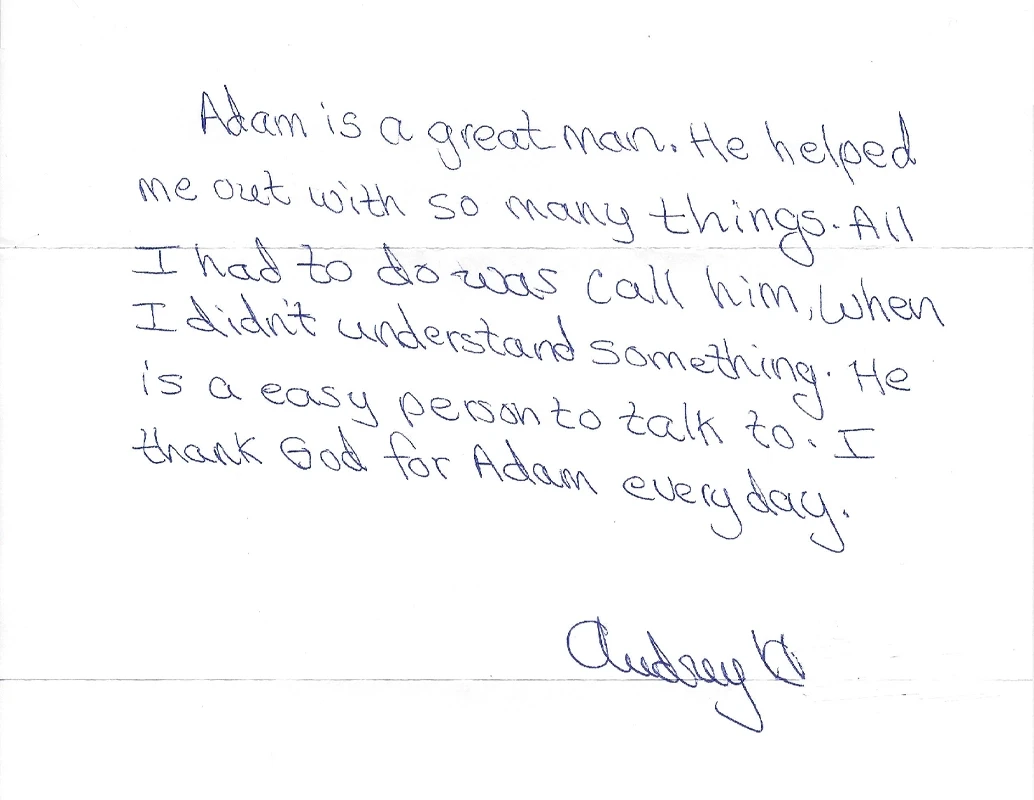 Adam is a great man. He helped
me out with so many things. All
I had to do was call him, when
I didn't understand something. He
is a easy person to talk to. I
thank God for Adam every day.
Audrey